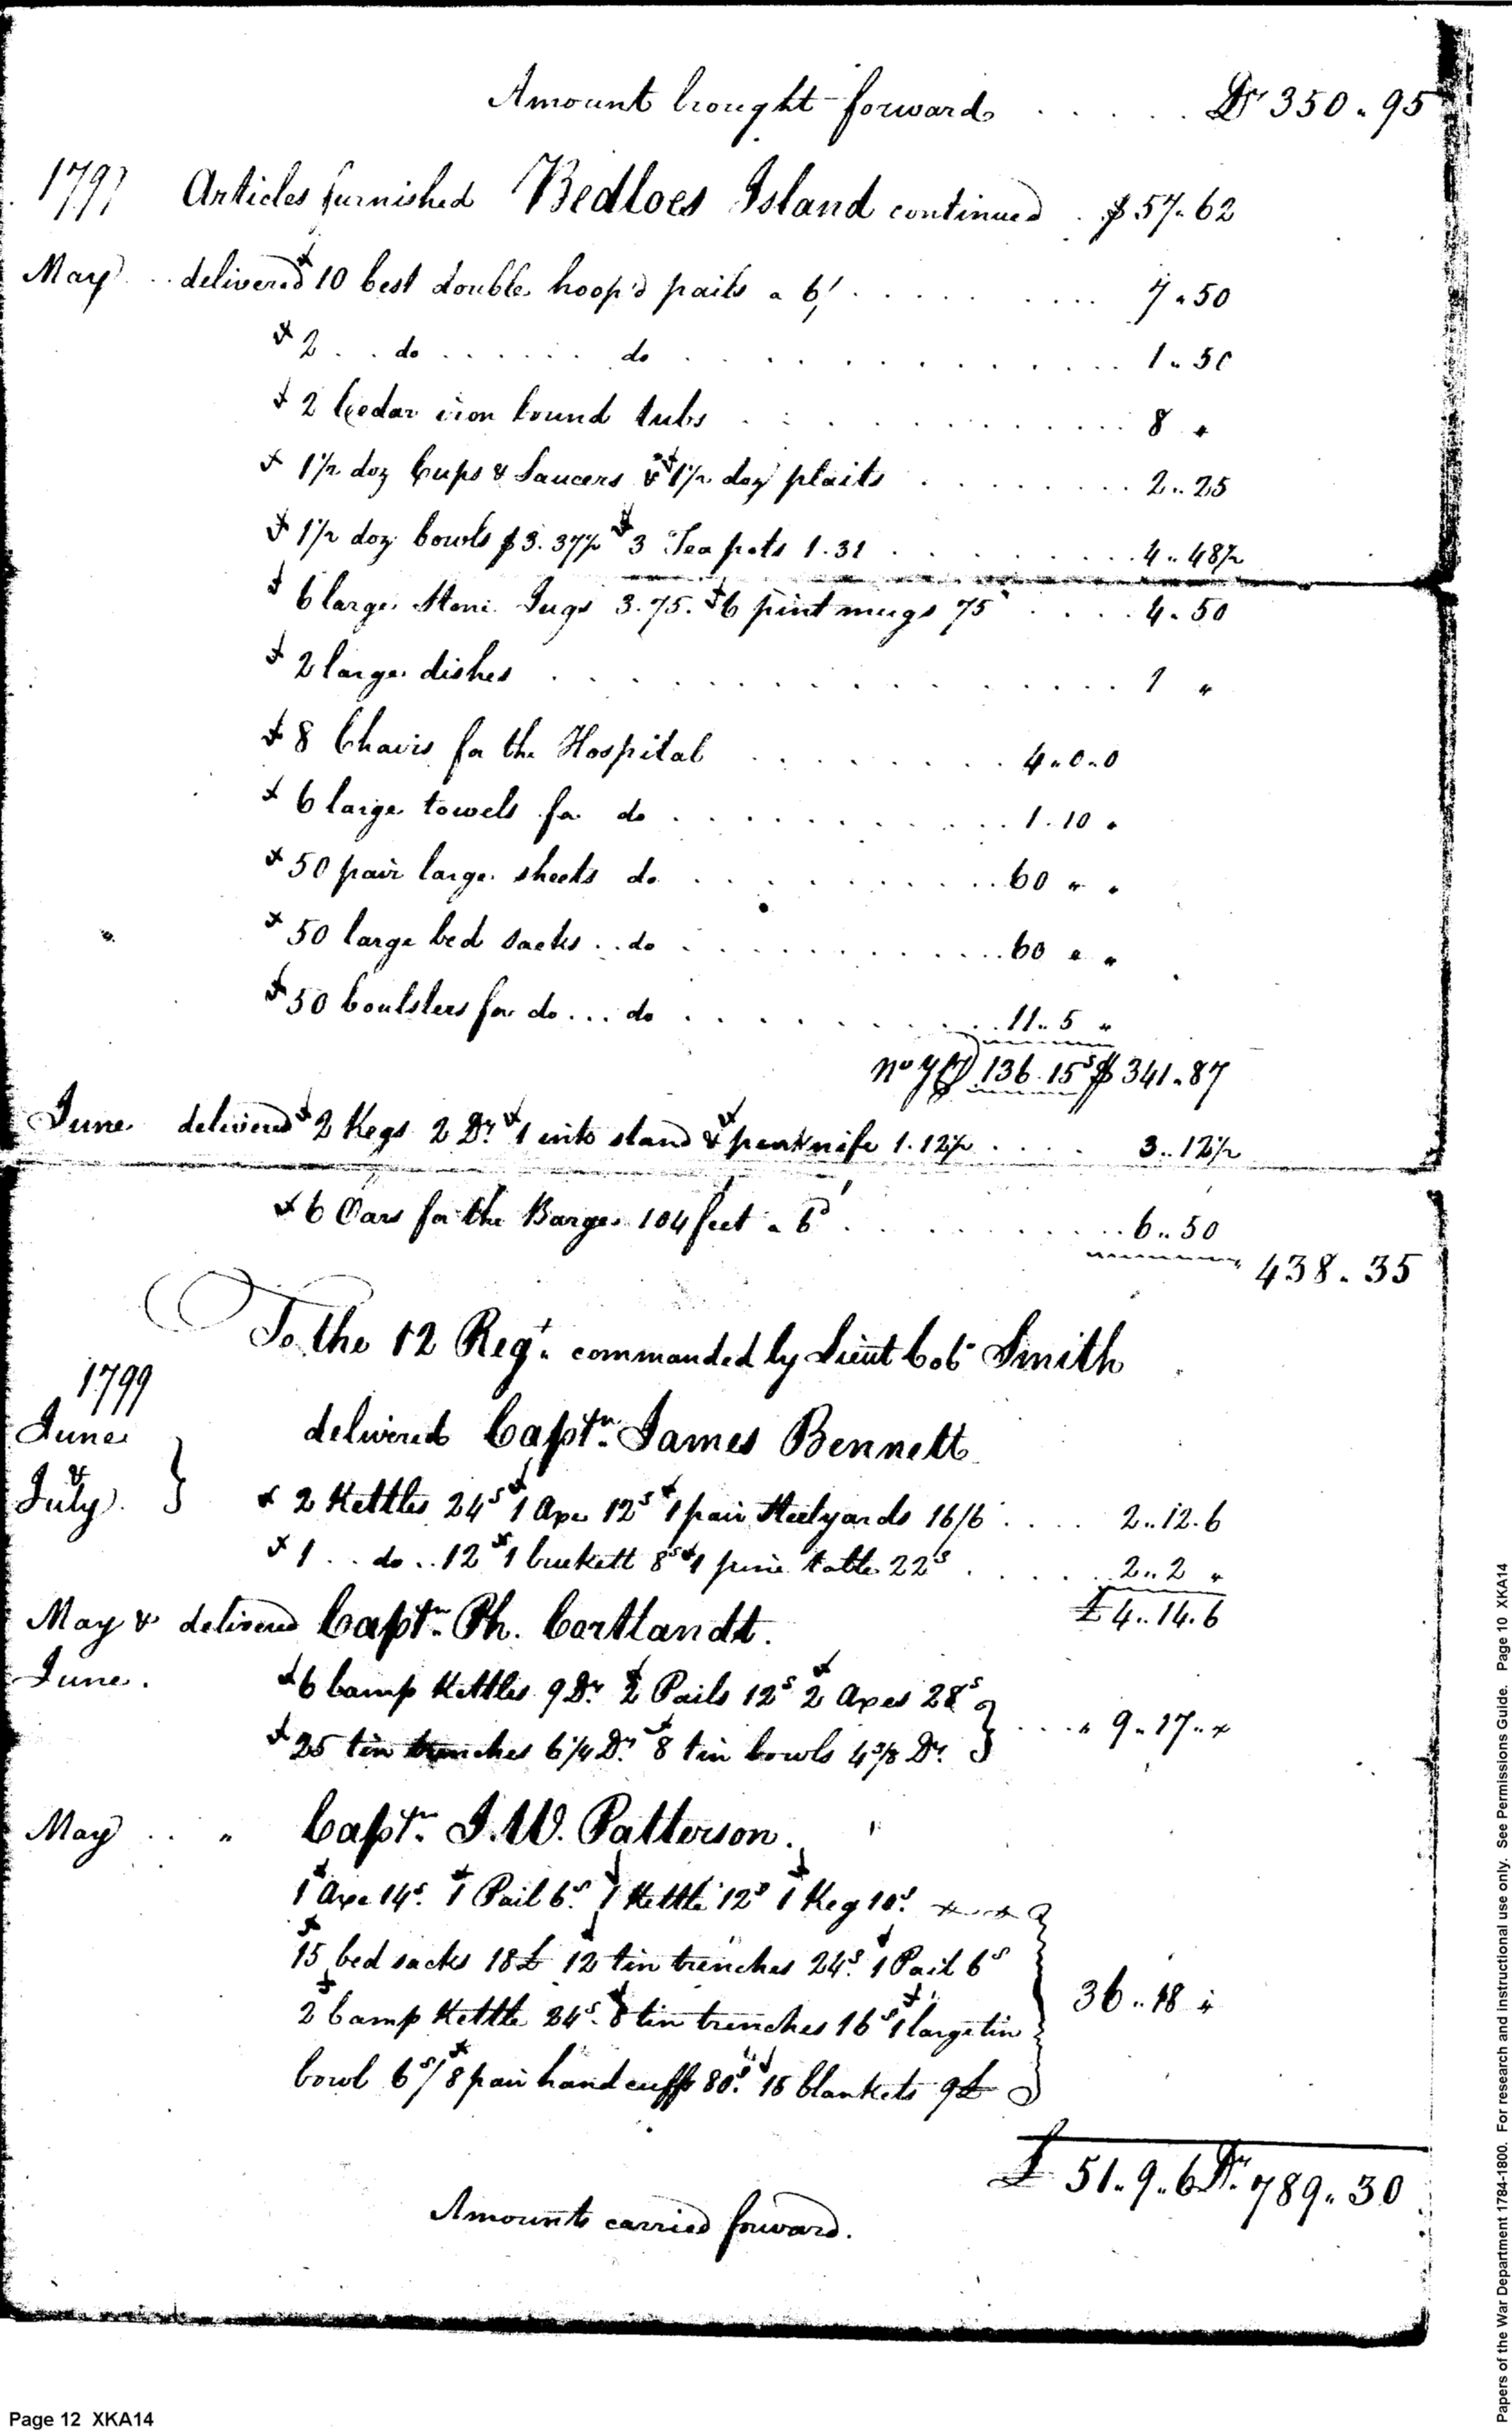 Amount brought forward . . . . . Dr 350.95
1799 Articles furnished Bedloes Island continued . $57.62
May .. delivered 10 best double hoop'd pails a 6/ . . . . . 7.50
2 . . do . . . . . . do . . . . . 1.50
2 Cedar iron bound tubs . . . . . 8 "
1½ doz Cups & Saucers & 1½ doz plaits . . . . . 2..25
1½ doz bowls $3.37½ 3 Tea pots 1.31 . . . . . 4..48½
6 large Stone Jugs 3.75. 6 pint mugs 75 . . . . 4.50
2 large dishes . . . . . 1 "
8 Chairs for the Hospital . . . . . 4..0..0
6 large towels for do . . . . . 1.10 "
50 pair large sheets do . . . . . 60 " "
50 large bed sacks .. do . . . . . 60 " "
50 boulsters for do ... do . . . . . 11..5 "
no 7 136.15s $341.87
June delivered 2 Kegs 2 Dr. 1 ink stand & penknife 1.12½ . . . . 3..12½
6 Oars for the Barge 104 feet a 6d . . . . . 6..50
438.35
To the 12 Regt. commanded by Lieut Col Smith
1799
June delivered Captn. James Bennett
&
July } 2 Kettles 24s 1 Axe 12s 1 pair Steelyards 16/6 . . . . 2..12.6
1 .. do .. 12 1 buckett 8s 1 pine table 22s . . . . . 2..2 "
£4..14.6
May & delivered Captn. Ph. Cortlandt.
June. 6 Camp Kettles 9 Dr. 2 Pails 12s 2 Axes 28s
25 tin trenches 6¼ Dr. 8 tin bowls 4⅜ Dr. } . . . . " 9.17.. "
May .. " Captn. J.W. Patterson.
1 Axe 14s. 1 Pail 6s. 1 Kettle 12s 1 Keg 10s.
15 bed sacks 18£ 12 tin trenches 24s. 1 Pail 6s
2 Camp Kettle 24s. 8 tin trenches 16s 1 large tin 36..18 "
bowl 6s/ 8 pair hand cuffs 80s. 15 blankets 9£
£ 51.9..6 Dr. 789.30
Amounts carried forward.
Page 12 XKA14
Papers of the War Department 1784-1800. For research and instructional use only. See Permissions Guide. Page 10 XKA14